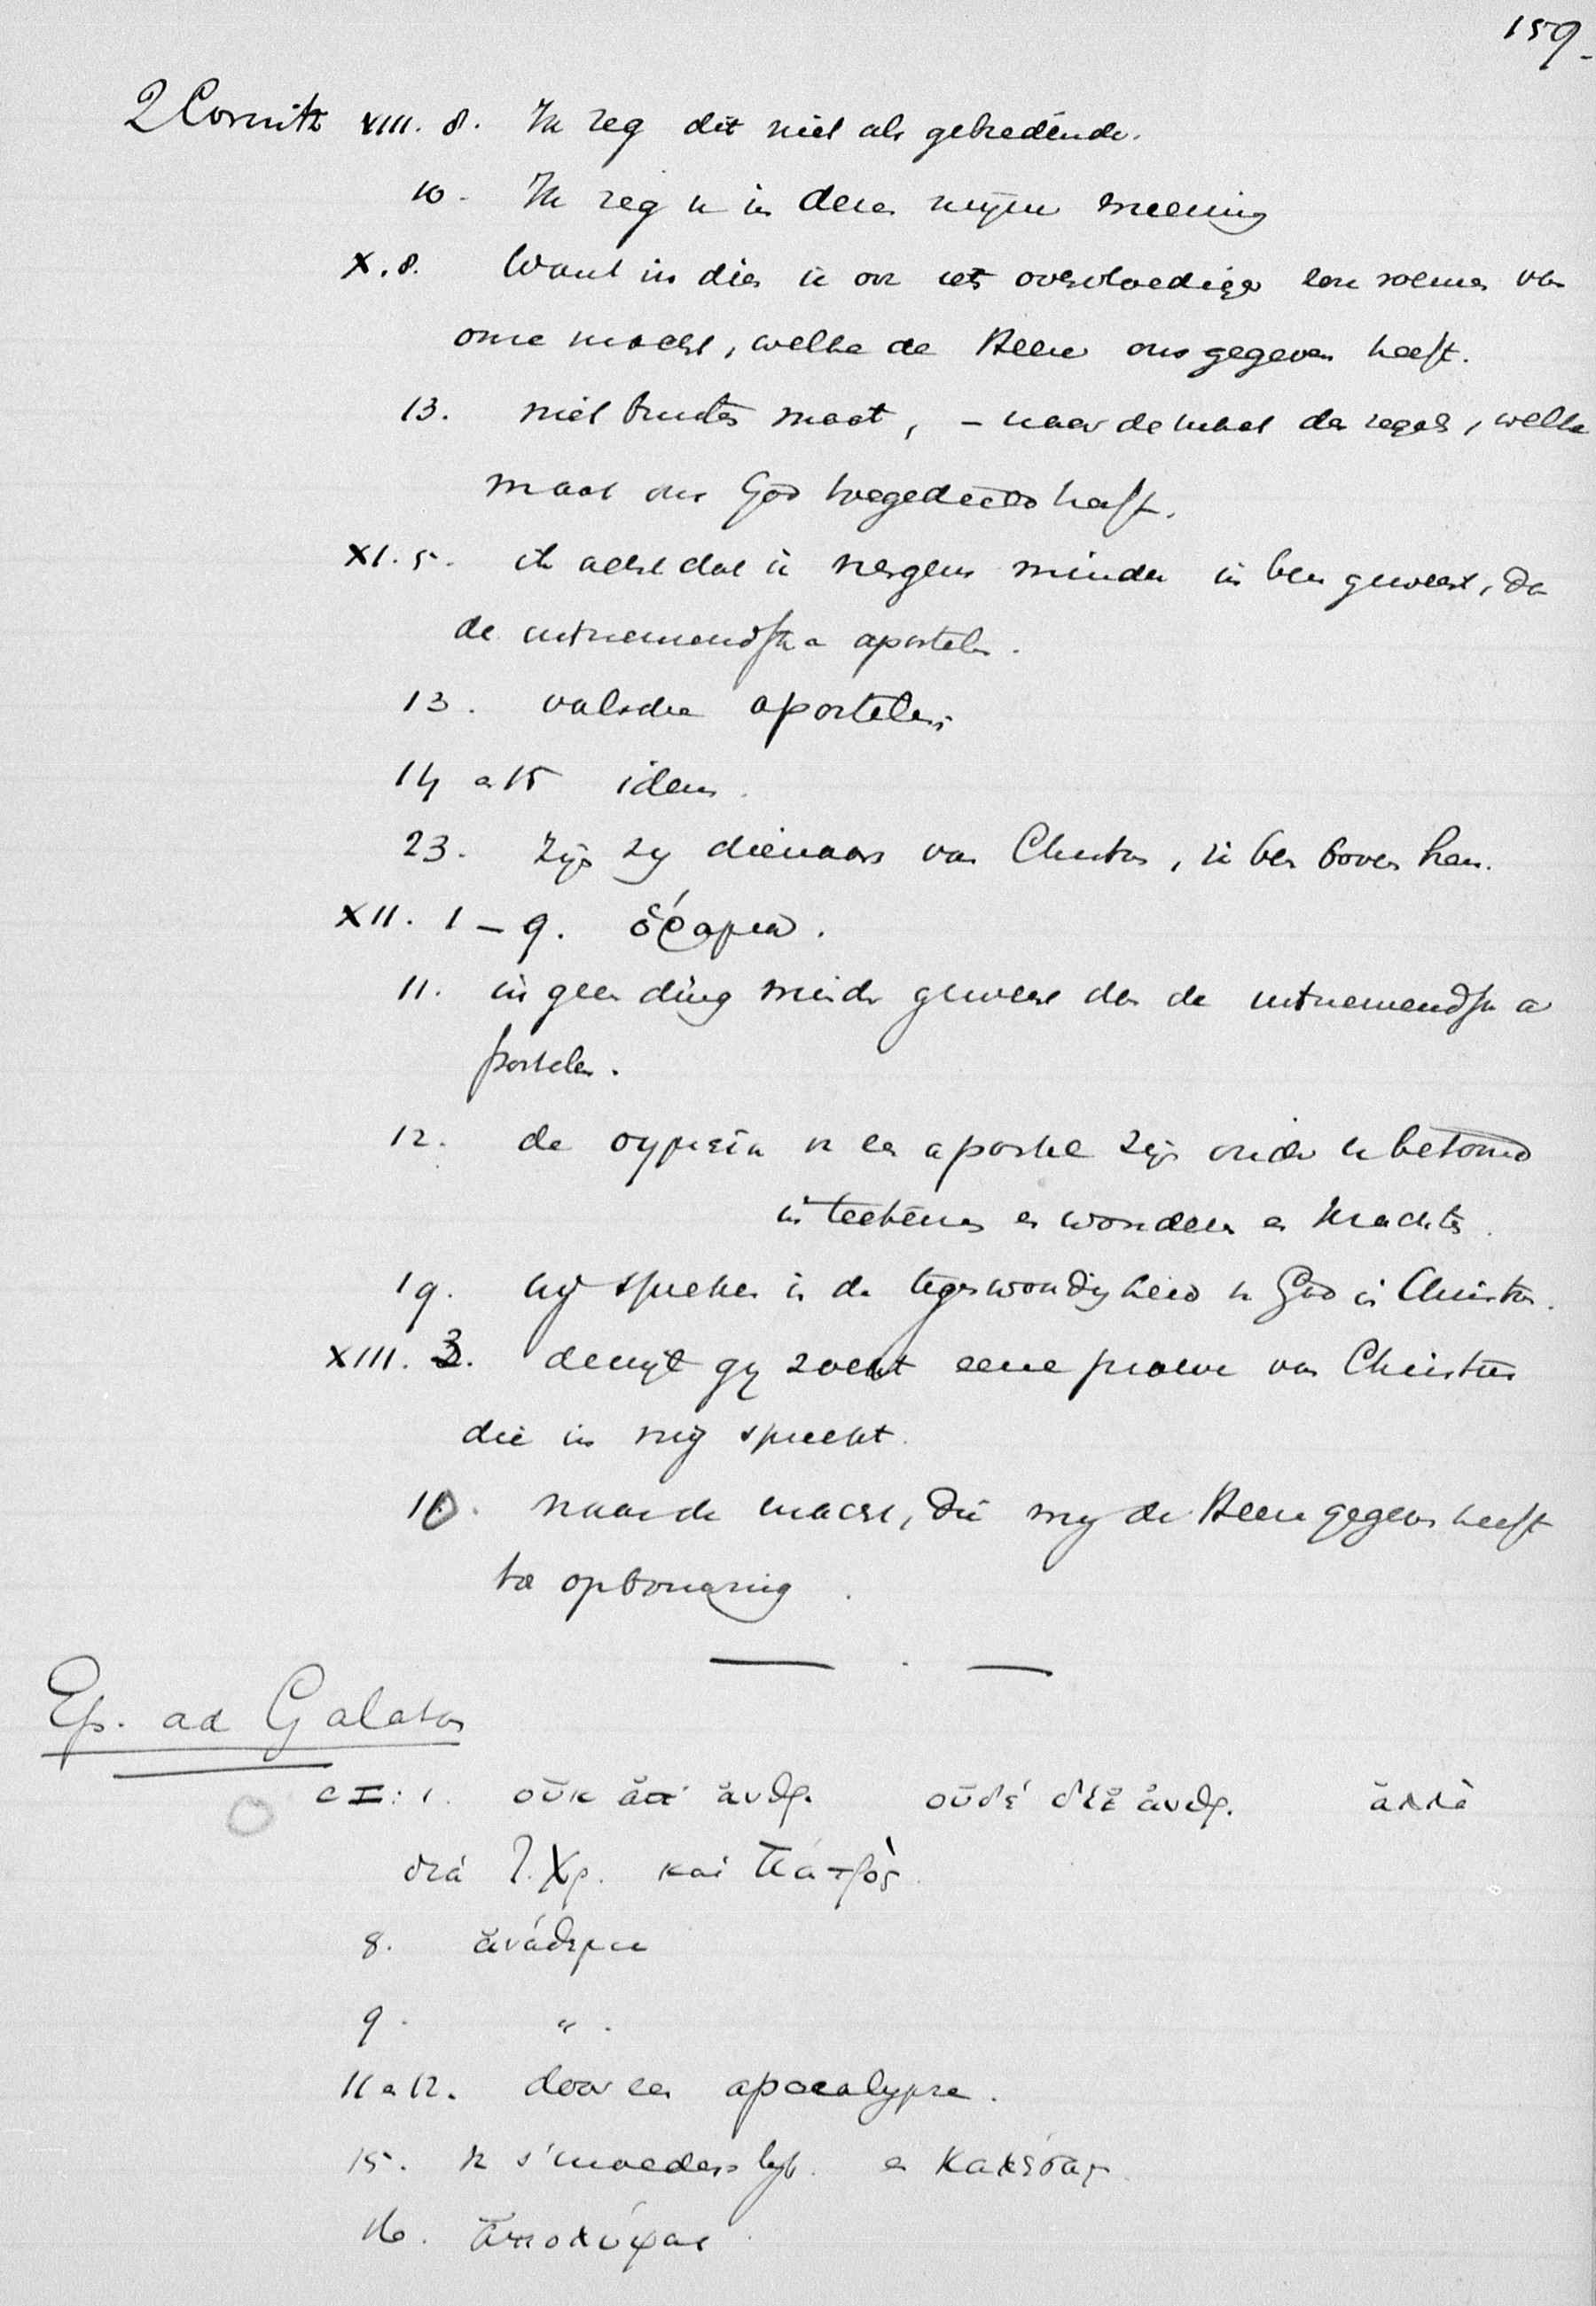 159.
2 Corinth VIII. 8. Ik zeg dit niet als gebiedende.
10. Ik zeg u in deze mijne meening
X. 8. Want indien ik ook iets overvloediger zou roemen van
onze macht, welke de Heere ons gegeven heeft.
13. niet buiten maat, – naar de maat des regels, welke
maat ons God toegedeeld heeft.
XI. 5. ik acht dat ik nergens minder in ben geweest, dan
de uitnemendste apostelen.
13. valsche apostelen,
14 en 15 idem.
23. Zijn zij dienaars van Christus, ik ben boven hen.
XII. 1 – 9. ὅραμα.
11. in geen ding minder geweest dan de uitnemendste a
postelen.
12. de σημεῖα v een apostel zijn onder u betoond
in teekenen en wonderen en krachten.
19. wij spreken in de tegenwoordigheid v God in Christus.
XIII. 3. dewijl gij zoekt eene proeve van Christus
die in mij spreekt.
10. naar de macht, die mij de Heere gegeven heeft
tot opbouwing.
Ep. ad Galatas
c I: 1. οὐκ ἀπ' ἀνθρ. οὐδέ δι' ἀνθρ. ἀλλὰ
διά Ἰ. Χρ. καί Πατρὸς.
8. ἀνάθεμα
9. " .
11 en 12. door een apocalypse.
15. v s'moeders lijf. en καλέσας.
16. ἀποκαλύψαι